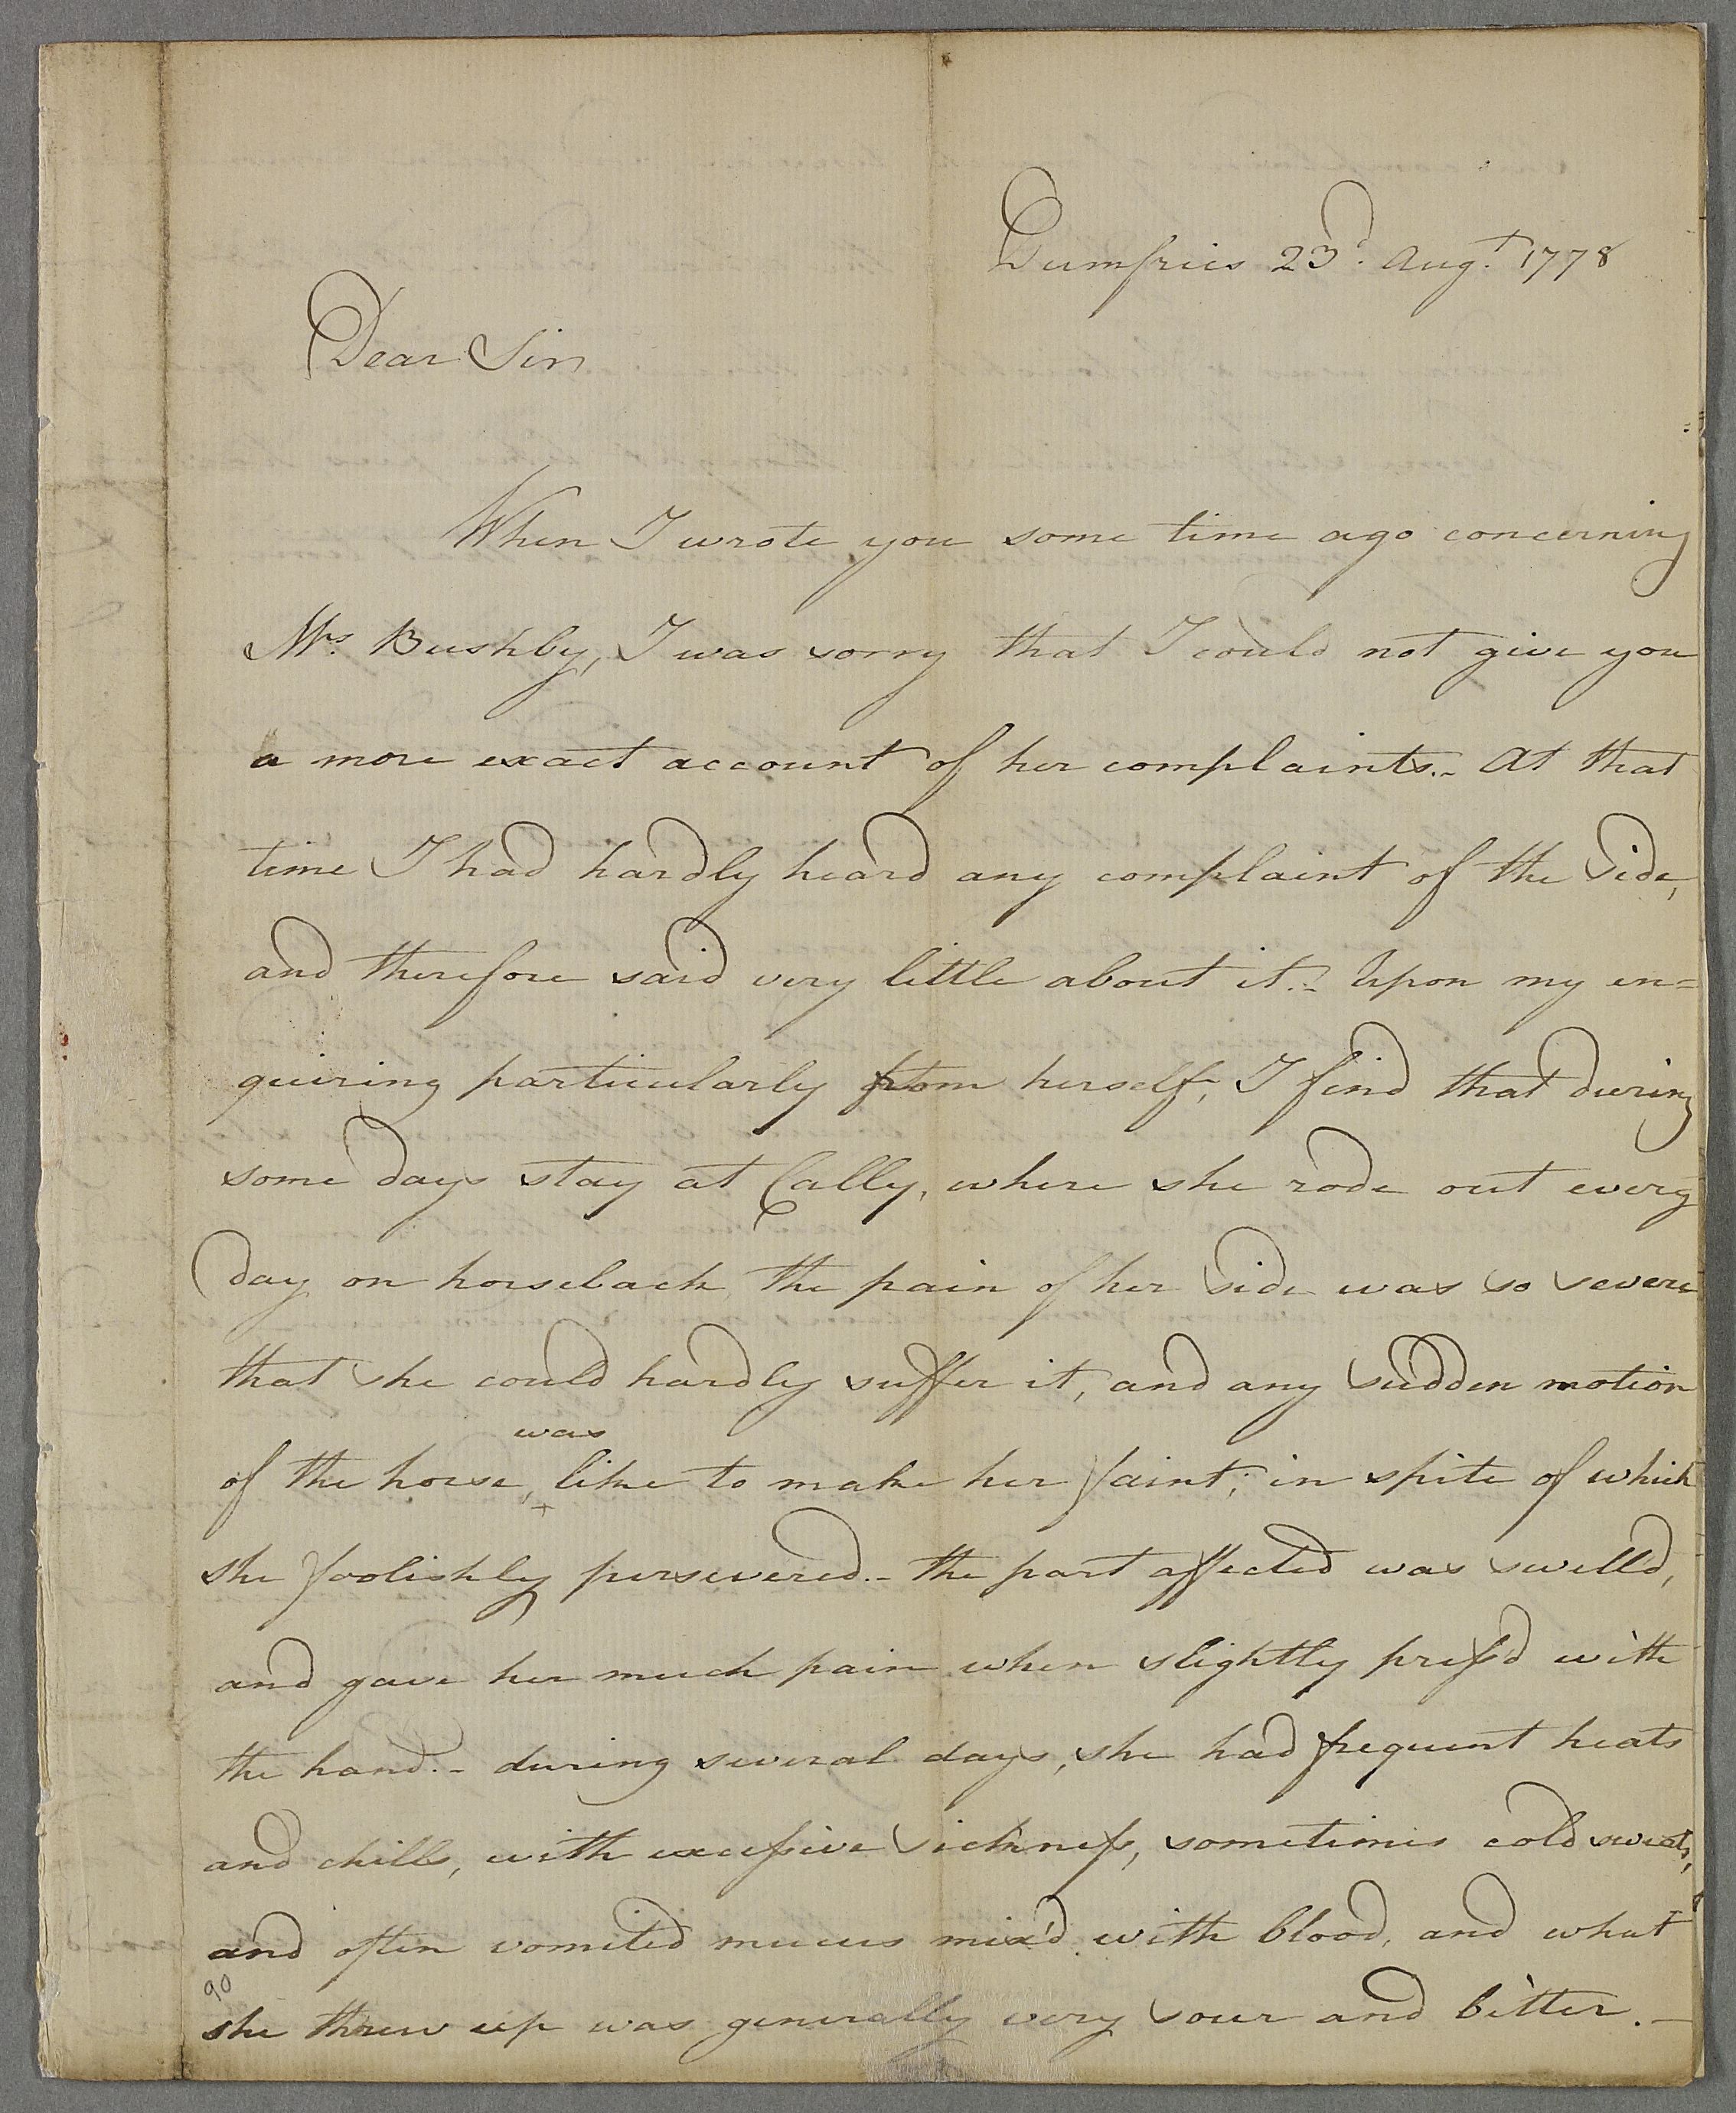 Dumfries 23d. Augt. 1778
Dear Sir
When I wrote you some time ago concerning
Mrs. Bushby, I was sorry that I could not give you
a more exact account of her complaints.- At that
time I had hardly heard any complaint of the Side,
and therefore said very little about it.- Upon my en=
quiring particularly from herself, I find that during
some days stay at Cally, where she rode out every
day on horseback the pain of her Side was so severe
that she could hardly suffer it, and any sudden motion
was
of the horse, like to make her faint; in spite of which
she foolishly persevered.- the part affected was swelld,
and gave her much pain when slightly preſsd with
the hand.- during several days, she had frequent heats
and chills, with exceſsive Sickneſs, sometimes cold sweats,
and often vomited mucus mix'd with blood, and what
90
she threw up was generally very sour and bitter.-